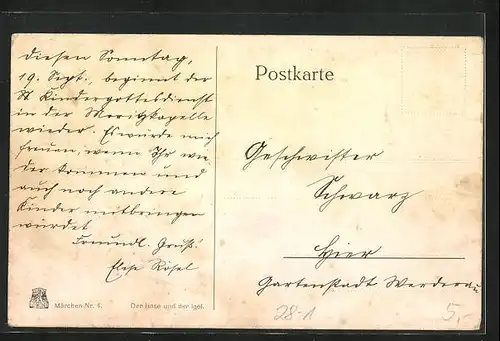 Diesen Sonntag,
19. Sept., beginnt der
Kindergottesdienst
in der Moritzkapelle
wieder. Es würde mich
freuen, wenn Ihr wie-
der kommen und
auch noch andere
Kinder mitbringen
würdet
Freundl. Gruß!
Else Rösel
Märchen-Nr. 4.
Der Hase und der Igel.
Postkarte
Geschwister
Schwarz
Hier
Gartenstadt Werderau
28-1
5,-